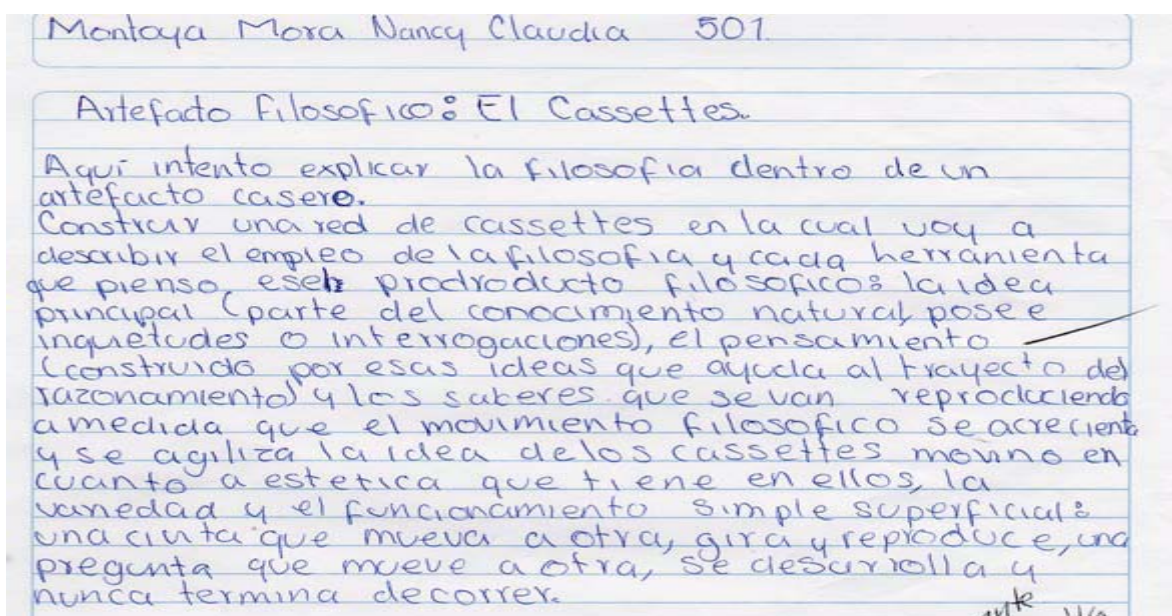 Montoya Mora Nancy Claudia 501
Artefacto Filosofico: El Cassettes.
Aquí intento explicar la filosofia dentro de un
artefacto casero.
Construir una red de cassettes en la cual voy a
describir el empleo de la filosofia y cada herramienta
que pienso, es el prodroducto filosofico: la idea
principal (parte del conocimiento natural, posee
inquietudes o interrogaciones), el pensamiento
(construido por esas ideas que ayuda al trayecto del
razonamiento) y los saberes que se van reproduciendo
a medida que el movimiento filosofico se acrecienta
y se agiliza la idea de los cassettes movino en
cuanto a estetica que tiene en ellos, la
variedad y el funcionamiento simple superficial:
una cinta que mueva a otra, gira y reproduce, una
pregunta que mueve a otra, se desarrolla y
nunca termina decorrer.